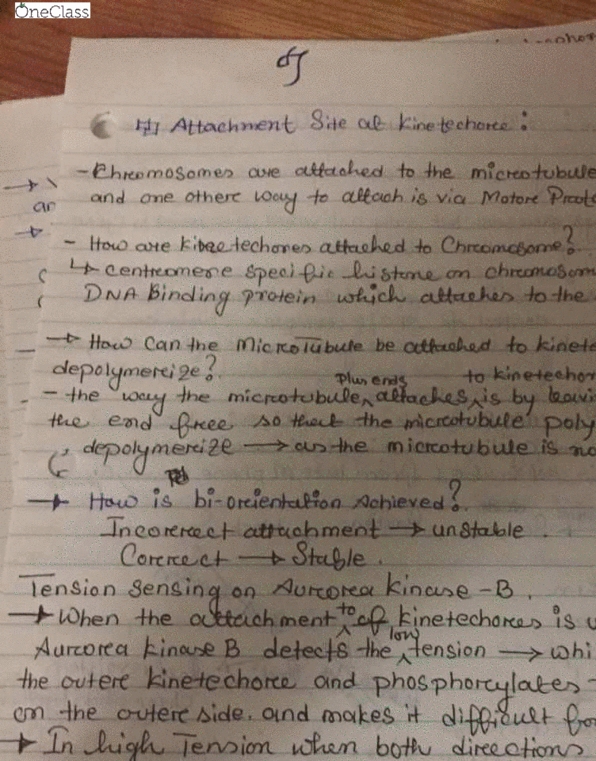 OneClass
Attachment Site at Kinetechore:
- Chromosomes are attached to the microtubule
and one othere way to attach is via Motore Prote
- How are kinetechores attached to Chromosome?
↳ centromere specific histone on chromosom
DNA Binding protein which attaches to the
→ How can the MicroTubule be attached to kinete
depolymerize?
- the way the microtubule plus ends attaches is by leavi to kinetechor
the end free so that the microtubule poly
depolymerize → as the microtubule is no
→ How is bi-orientation Achieved?
Incorrect attachment → unstable.
Correct → Stable.
Tension sensing on Aurora kinase -B.
→ When the attachment to of kinetechores is u
Aurora kinase B detects the low tension → whi
the outere kinetechore and phosphorylates
on the outere side. and makes it difficult for
→ In high Tension when both directions